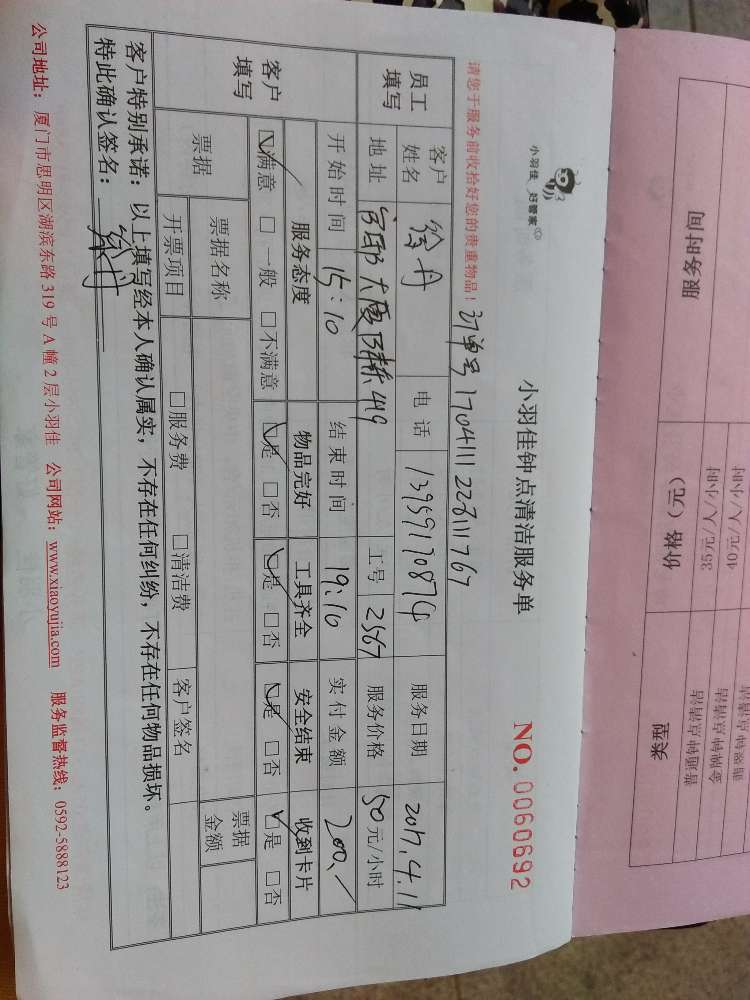 小羽佳 好管家
小羽佳钟点清洁服务单
NO. 0060692
请您于服务前收拾好您的贵重物品！ 订单号 170411122811767
员工填写
客户姓名 徐丹 电话 13959170874 服务日期 2017.4.11
地址 大唐 449 工号 2567 服务价格 50元/小时
开始时间 15:10 结束时间 19:10 实付金额 200.
客户填写
服务态度 物品完好 工具齐全 安全结束 收到卡片
☑满意 □一般 □不满意 ☑是 □否 ☑是 □否 ☑是 □否 ☑是 □否
票据 票据名称 票据金额
开票项目 □服务费 □清洁费 客户签名
客户特别承诺：以上填写经本人确认属实，不存在任何纠纷，不存在任何物品损坏。
特此确认签名：徐丹
公司地址：厦门市思明区湖滨东路 319 号 A 幢 2 层小羽佳 公司网站：www.xiaoyujia.com 服务监督热线：0592-5888123
类型 价格（元） 服务时间
普通钟点清洁 35元/人/小时
40元/人/小时